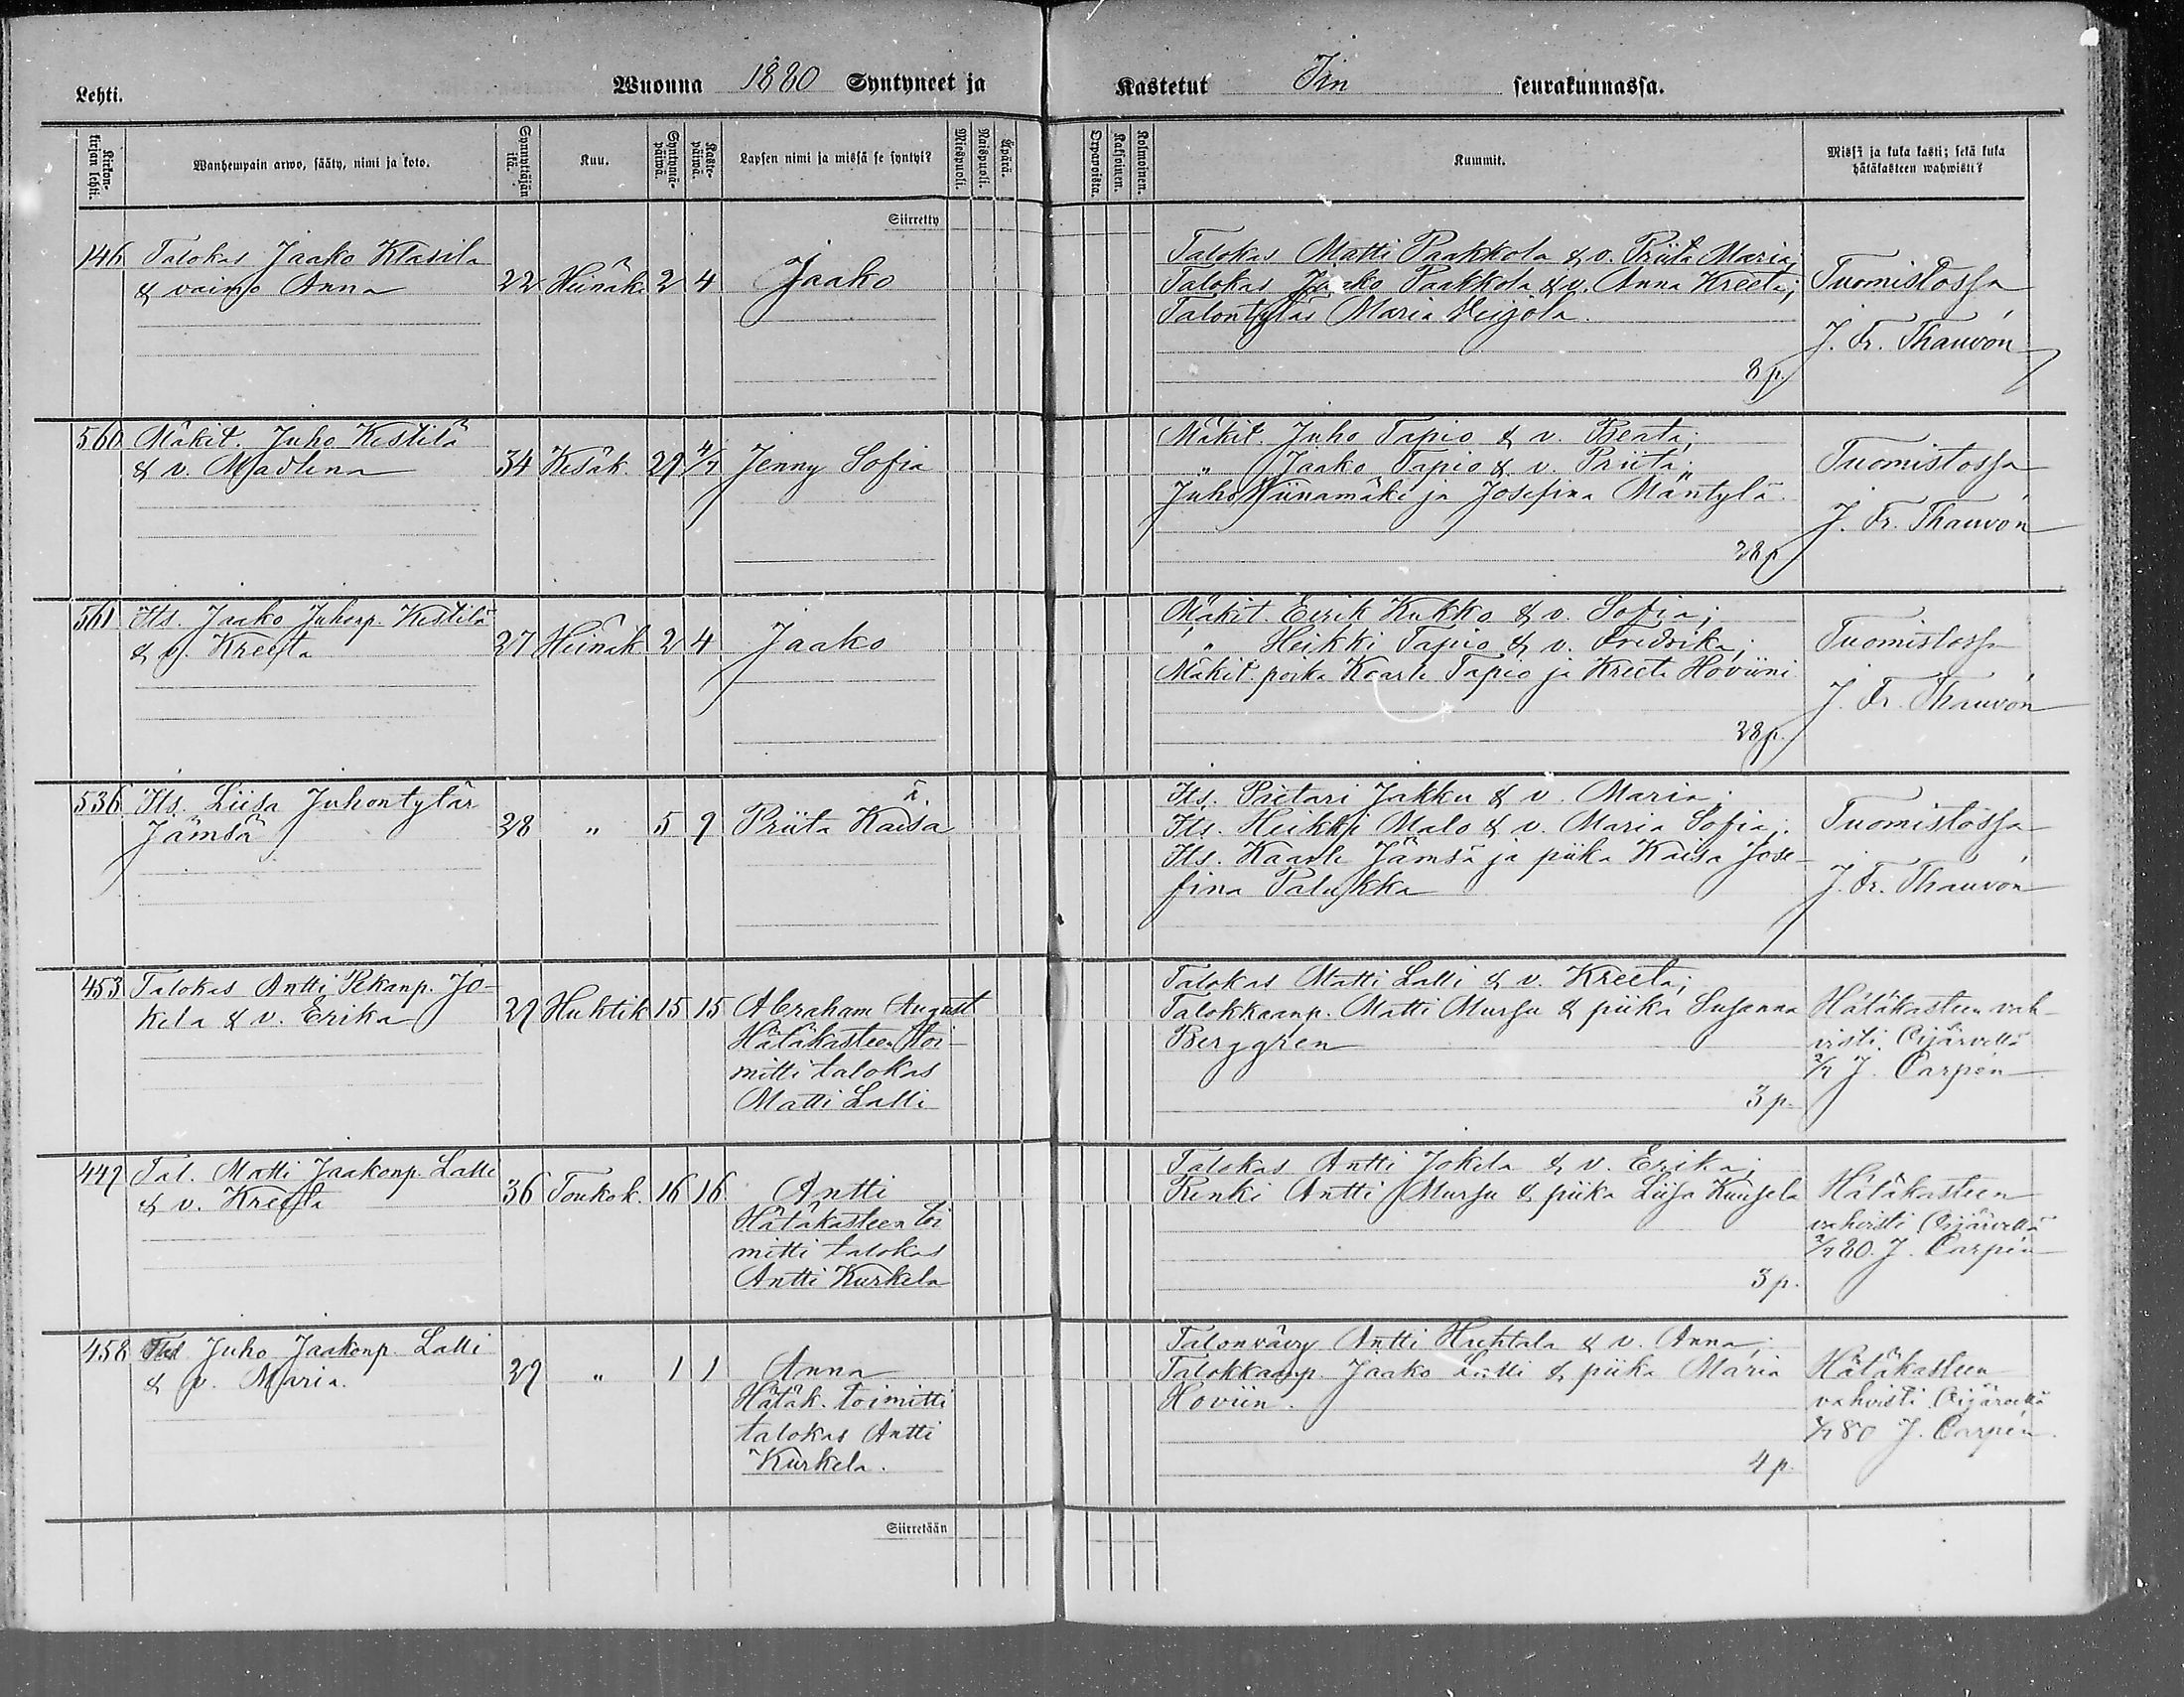 Lehti.
Wuonna 1880 Syntyneet ja
Kastetut Iin seurakunnassa.
Kirkonkirjan lehti.
Wanhempain arwo, sääty, nimi ja koto.
Synnyttäjän ikä.
Kuu.
Syntymäpäiwä.
Kastepäiwä.
Lapsen nimi ja missä se syntyi?
Miespuoli.
Naispuoli.
Äpärä.
Orpawoista.
Kaksoinen.
Kolmoinen.
Kummit.
Missä ja kuka kasti; sekä kuka
hätäkasteen wahwisti?
Siirretty
146 Talokas Jaako Klasila
& vaimo Anna 22 Heinäk. 2 4 Jaako
Talokas Matti Paakkola & v. Priita Maria;
Talokas Jaako Paakkola & v. Anna Kreeta;
Talontytär Maria Veijola.
8 p.
Tuomistossa
J. Fr. Thauvón
560 Mäkit. Juho Kestilä
& v. Madlena 34 Kesäk. 29 4/7 Jenny Sofia
Mäkit. Juho Tapio & v. Beata;
" Jaako Tapio & v. Priita;
Juho Niinamäki ja Josefina Mäntylä.
28 p
Tuomistossa
J. Fr. Thauvón
561 Its. Jaako Juhonp. Kestilä
& v. Kreeta 27 Heinäk 2 4 Jaako
Mäkit. Eerik Kukko & v. Sofia;
" Heikki Tapio & v. Fredrika;
Mäkit. poika Kaarle Tapio ja Kreeta Hoviini
28 p.
Tuomistossa
J. Fr. Thauvón
536 Its. Liisa Juhontytär
Jämsä 28 " 5 9 Priita Kaisa ä.
Its. Pietari Jakku & v. Maria;
Its. Heikki Malo & v. Maria Sofia;
Its. Kaarle Jämsä ja piika Kaisa Jose-
fina Palukka
Tuomistossa
J. Fr. Thauvón
453 Talokas Antti Pekanp. Jo-
kela & v. Erika 29 Huhtik 15 15 Abraham August
Hätäkasteen toi-
mitti talokas
Matti Lalli
Talokas Matti Lalli & v. Kreeta;
Talokkaanp. Matti Mursu & piika Susanna
Berggren
3 p.
Hätäkasteen vah-
visti Oijärvellä
2/7 J. Carpén
449 Tal. Matti Jaakonp. Lalli
& v. Kreeta 36 Toukok. 16 16 Antti
Hätäkasteen toi
mitti talokas
Antti Kurkela
Talokas Antti Jokela & v. Erika;
Renki Antti Mursu & piika Liisa Kuusela
3 p.
Hätäkasteen
vahvisti Oijärvellä
2/7 80. J. Carpén
458 Juho Jaakonp. Lalli
& v. Maria. 29 " 1 1 Anna
Hätäk. toimitti
talokas Antti
Kurkela.
Talonvävy Antti Huhtala & v. Anna;
Talokkaanp. Jaako Lalli & piika Maria
Hoviin.
4 p.
Hätäkasteen
vahvisti Oijärvellä
2/7 80 J. Carpén
Siirretään